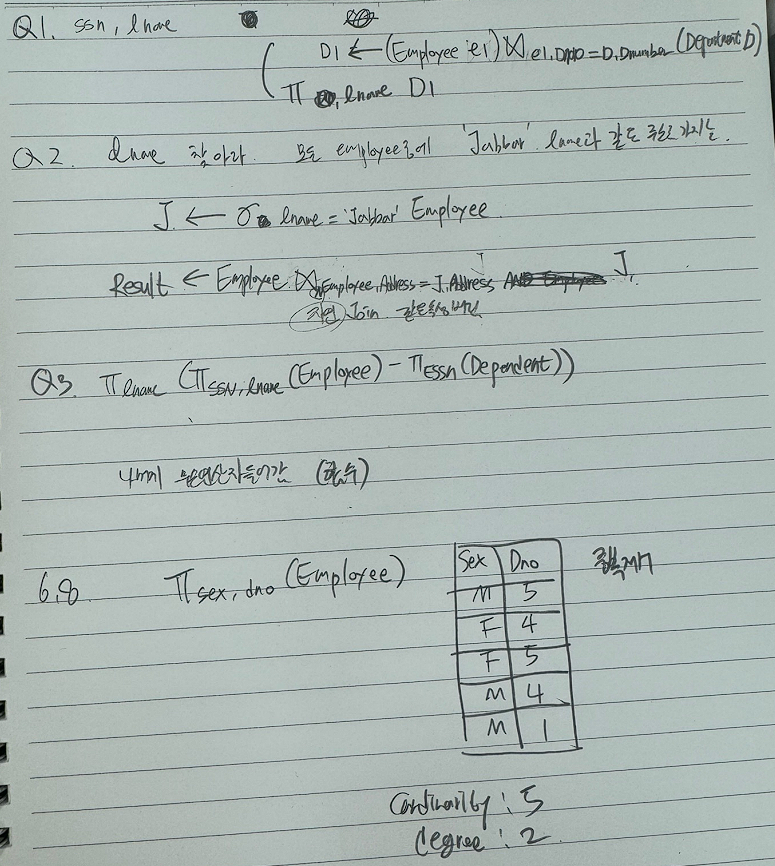 Q1. ssn, lname
D1 ← (Employee e1) ⋈ e1.Dno = D.Dnumber (Department D)
π lname D1
Q2. lname 찾아라. 모든 employee중에 'Jabbar' lname과 같은 주소 가지는.
J ← σ lname = 'Jabbar' Employee
Result ← Employee ⋈ Employee.Address = J.Address J.
자연 Join 같은속성
Q3. π lname (π SSN, lname (Employee) - π Essn (Dependent))
4번에 들어간 (함수)
6.8 π sex, dno (Employee)
Sex Dno 중복제거
M 5
F 4
F 5
M 4
M 1
Cardinarlity : 5
degree : 2